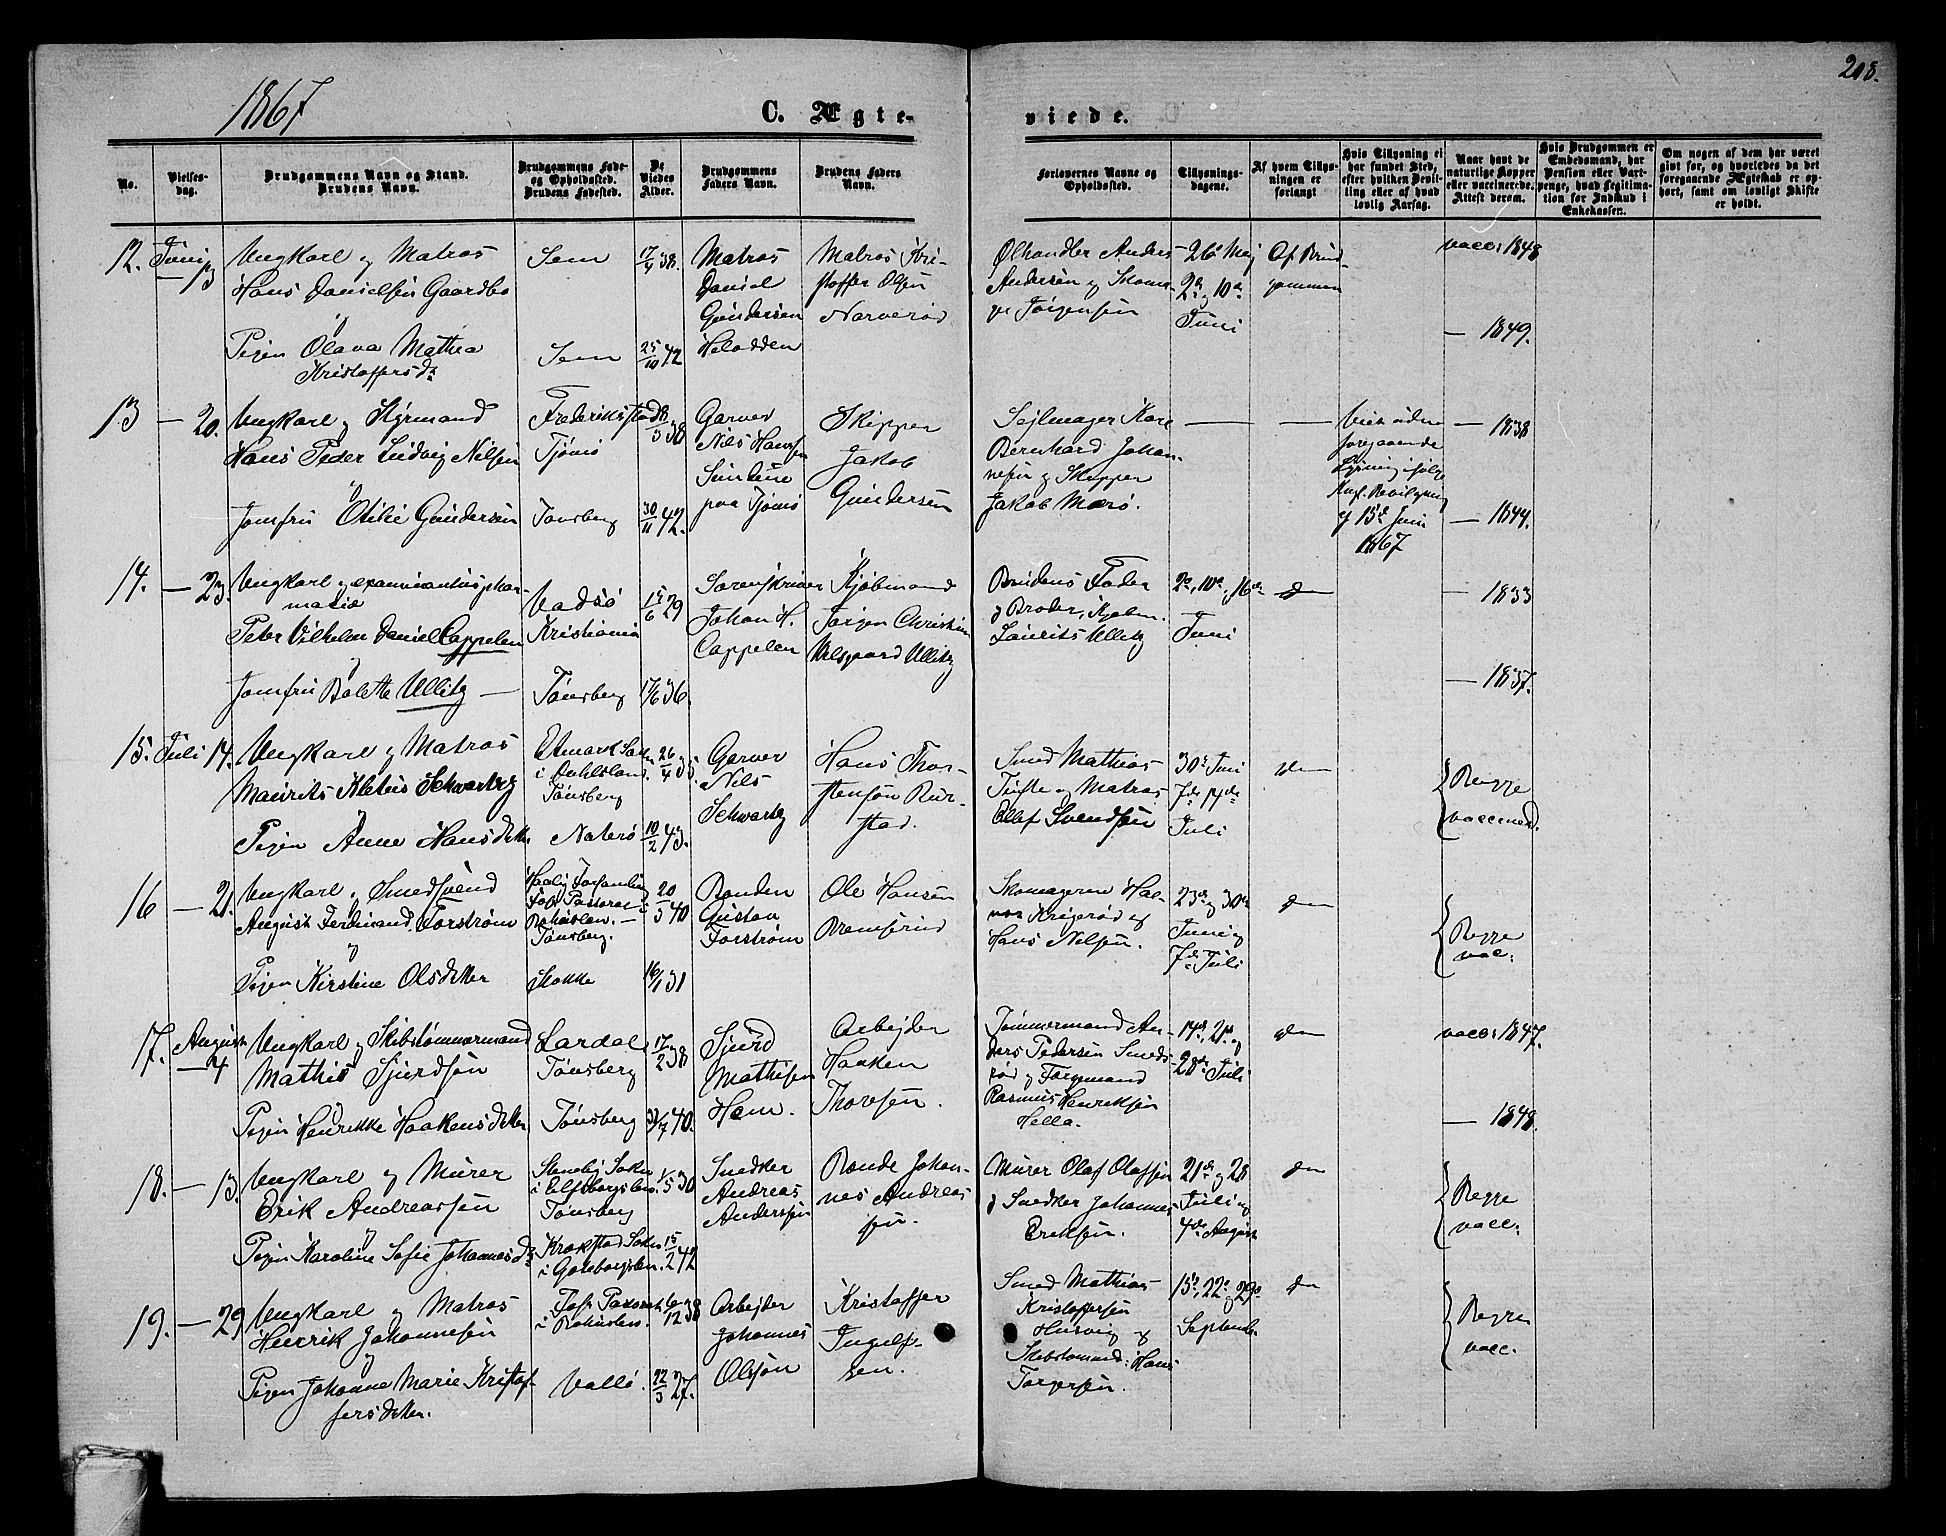 1867
208.
C. Ægte-
viede.
No.
Vielses-
dag.
Brudgommens Navn og Stand.
Brudens Navn.
Brudgommens Føde-
og Opholdssted.
Brudens Fødested.
De
Viedes
Alder.
Brudgommens
Faders Navn.
Brudens Faders
Navn.
Forlovernes Navne og
Opholdssted.
Tillysnings-
dagene.
Af hvem Tillys-
ningen er
forlangt.
Hvis Tillysning ei
har fundet Sted,
efter hvilken Bevil-
ling eller af hvad
lovlig Aarsag.
Naar havt de
naturlige Kopper
eller vaccinerede.
Attest derom.
Hvis Brudgommen er
Embedsmand, har
Pension eller Vart-
penge, hvad Legitima-
tion for Indskud i
Enkekassen.
Om nogen af dem har været
givt før, og hvorledes da det
foregaaende Ægteskab er op-
hørt, samt om lovligt Skifte
er holdt.
12.
Juni
— 13
Ungkarl og Matros
Hans Danielsen Gaardbo
og
Pigen Olava Mathea
Kristoffersdr
Sem
Sem
17/4 38.
25/10 42
Matros
Daniel
Gundersen
Matros Kri-
stoffer Olsen
Narverød
Ølhandler Anders
Andersen og Skoma-
ger Jørgensen
26 Maj
2den og 10de
Juni
Af Brud-
gommen
vacc: 1848
— 1849.
13
— 20.
Ungkarl og Styrmand
Hans Peder Ludvig Nilsen
og
Jomfru Otilie Gundersen
Frederikstad
Tjømø
Tønsberg
30/11 42.
Garver
Nils Hansen
paa Tjømø
Skipper
Jakob
Gundersen
Sejlmager Kare
Bernhard Johan-
nesen og Skipper
Jakob Mærø.
—
—
Viet uden
foregaaende
Lysning ifølge
Kngl. Bevilgning
af 15de Juni
1867
— 1838
— 1844.
14.
— 23.
Ungkarl og examinantus phar-
maciæ
Peter Vilhelm Daniel Cappelen
og
Jomfru Bolette Ullitz —
Vadsø
Kristiania
Tønsberg
15/6 29
17/6 36.
Sorenskriver
Johan H.
Cappelen
Kjøbmand
Jørgen Christian
Ullitz
Brudens Fader
og Broder, Kjøbm.
Laurits Ullitz
2den, 10de, 16de
Juni
do
— 1833
— 1837.
15.
Juli 14.
Ungkarl og Matros
Maurits Kletus Schwartz
og
Pigen Anne Hansdatter
i Dahlsland.
Tønsberg
Nøterø
26/4 35.
10/2 43.
Garver
Nils
Schwartz
Hans Thor-
stensen Rør-
stad.
Smed Mathias
og Matros
Olaf Svendsen
30te Juni
7de, 14de
Juli
do
Begge
vaccined.
16
— 21.
Ungkarl, Smedsvend
August Ferdinand Forstrøm
og
Pigen Kirstine Olsdatter
Bohuslen. —
Tønsberg.
Stokke
20/5 40
16/1 31
Bonden
Gustav
Forstrøm
Ole Hansen
Bramsrud
Skomagerne Hal-
vor Krigerød og
Hans Nilsen.
23de og 30te
Juni og
7de Juli
do
Begge
vac:
17.
August
— 4
Ungkarl og Skibstømmermand
Mathis Sjurdsøn
og
Pigen Henrikke Haakensdatter
Lardal
Tønsberg
Tønsberg
17/2 38
Sjurd
Mathisen
Hem.
Arbejder
Haaken
Thoresen.
Tømmermand An-
ders Pedersen Smeds-
rød og Formand
Rasmus Henriksen
Hella.
14de, 21de og
28de Juli
do
vacc: 1847.
— 1848.
18.
— 13.
Ungkarl og Murer
Erik Andreassen
og
Pigen Karoline Sofie Johannesdr
Steneby Sokn
i Elfsborgslen.
Tønsberg
Krokstad Sokn
i Gøteborgslen.
1/5 30
15/2 42
Snedker
Andreas
Anderssen
Bonde Johan-
nes Andreas-
sen.
Murer Olaf Olafsen
og Snedker Johannes
Eriksen.
21de og 28
Juli og
4de August
do
Begge
vacc:
19.
— 29
Ungkarl og Matros
Henrik Johannesen
og
Pigen Johanne Marie Kristof-
fersdatter.
i Bohuslen.
Valløe
6/12 38
22/3 27.
Arbejder
Johannes
Olsøn
Kristoffer
Ingulf-
sen.
Smed Mathias
Kristoffersen
Husvig og
Skibstømmd: Hans
Torgersen.
15de, 22de og 29de
September
do
Begge
vacc.